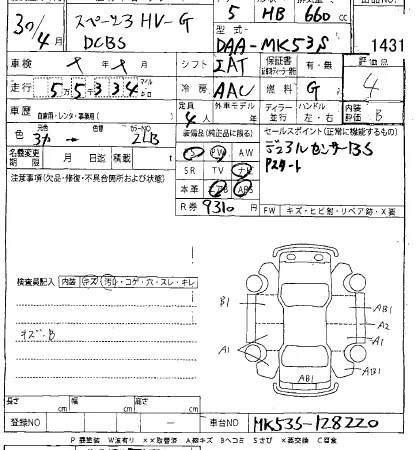 30/4月 スペーシア HV-G 5 HB 660cc
DCBS 型式 DAA-MK53S 1431
車検 年 月 シフト IAT 保証書 有・無 評価点
走行 5 5 3 3 4 マイル 冷房 AAC 燃料 G 4
車歴 自家用・レンタ・事業用( ) 定員 4人 外車モデル ディーラー 並行 ハンドル 左・右 内装評価 B
色 元色 色替 カラーNO 2LB 装備品(純正品に限る) セールスポイント(正常に機能するもの)
名義変更期限 月 日迄 積載 t PS PW AW デュアルセンサーBS
SR TV ナビ Pスタート
注意事項(欠品・修復・不具合箇所および状態) 本革 エアB ABS
R券 9310円 FW キズ・ヒビ割・リペア跡・X要
検査員記入 内装 キズ・汚れ・コゲ・穴・スレ・キレ
B1 AB1
A2
キズ・B A1 A1
AB1 AB1
長さ cm 幅 cm 高さ cm
登録NO - 車台NO MK53S-128220
P 要塗装 W波有り ××取替済 A線キズ Bヘコミ Sさび ×要交換 C腐食